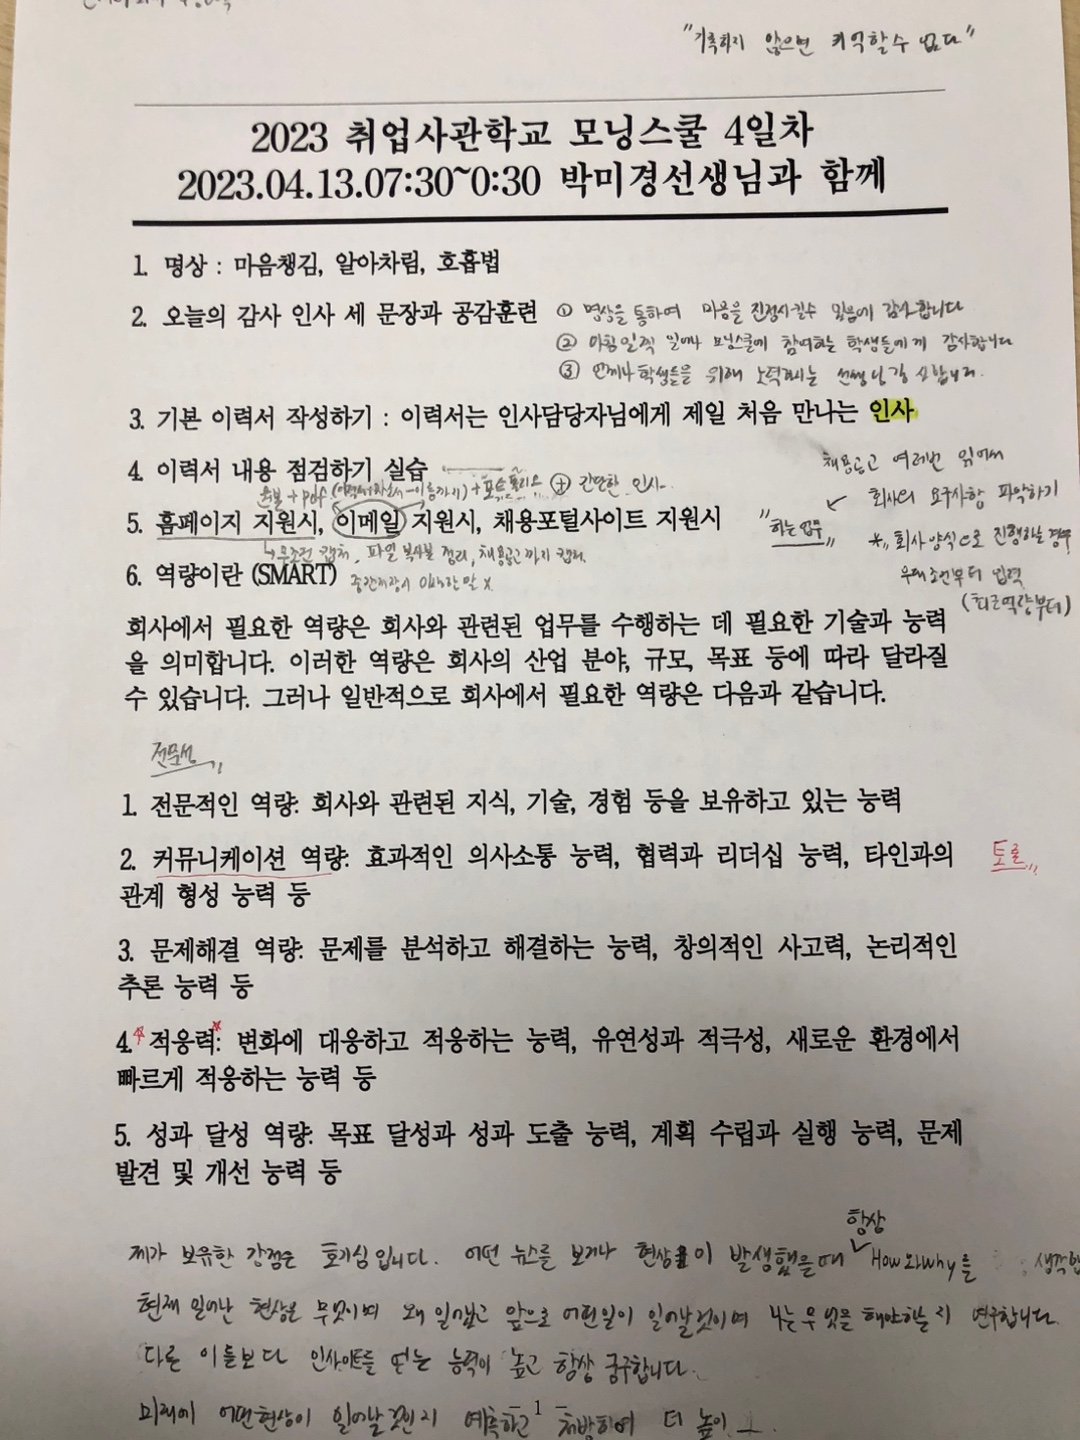 "기록하지 않으면 기억할수 없다"
2023 취업사관학교 모닝스쿨 4일차
2023.04.13.07:30~0:30 박미경선생님과 함께
1. 명상 : 마음챙김, 알아차림, 호흡법
2. 오늘의 감사 인사 세 문장과 공감훈련
① 명상을 통하여 마음을 진정시킬수 있음에 감사합니다
② 아침일찍 일어나 모닝스쿨에 참여하는 학생들에게 감사합니다
③ 언제나 학생들을 위해 노력하시는 선생님
3. 기본 이력서 작성하기 : 이력서는 인사담당자님에게 제일 처음 만나는 인사
4. 이력서 내용 점검하기 실습
채용공고 여러번 읽어서
회사의 요구사항 파악하기
"하는 업무"
* 회사양식으로 진행하는 경우
우대조건부터 입력
(최근역량부터)
+ pdf + 포트폴리오 ⊕ 간단한 인사
5. 홈페이지 지원시, 이메일 지원시, 채용포털사이트 지원시
↳ 무조건 캡처, 파일 복사본 정리, 채용공고까지 캡처
6. 역량이란 (SMART)
회사에서 필요한 역량은 회사와 관련된 업무를 수행하는 데 필요한 기술과 능력
을 의미합니다. 이러한 역량은 회사의 산업 분야, 규모, 목표 등에 따라 달라질
수 있습니다. 그러나 일반적으로 회사에서 필요한 역량은 다음과 같습니다.
전문성
1. 전문적인 역량: 회사와 관련된 지식, 기술, 경험 등을 보유하고 있는 능력
2. 커뮤니케이션 역량: 효과적인 의사소통 능력, 협력과 리더십 능력, 타인과의
토론
관계 형성 능력 등
3. 문제해결 역량: 문제를 분석하고 해결하는 능력, 창의적인 사고력, 논리적인
추론 능력 등
4. 적응력: 변화에 대응하고 적응하는 능력, 유연성과 적극성, 새로운 환경에서
빠르게 적응하는 능력 등
5. 성과 달성 역량: 목표 달성과 성과 도출 능력, 계획 수립과 실행 능력, 문제
발견 및 개선 능력 등
제가 보유한 강점은 호기심입니다. 어떤 뉴스를 보거나 현상이 발생했을때 항상 How와why를
현재 일어난 현상은 무엇이며 왜 일어났고 앞으로 어떤일이 일어날것이며 나는 무엇을 해야하는지 연구합니다.
다른 이들보다 인사이트를 얻는 능력이 높고 항상 궁구합니다.
미래에 어떤현상이 일어날것인지 예측하고 더 높이
1